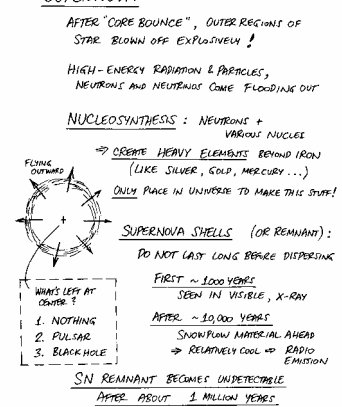 AFTER "CORE BOUNCE", OUTER REGIONS OF
STAR BLOWN OFF EXPLOSIVELY!
HIGH-ENERGY RADIATION & PARTICLES,
NEUTRONS AND NEUTRINOS COME FLOODING OUT
NUCLEOSYNTHESIS: NEUTRONS +
VARIOUS NUCLEI
⇒ CREATE HEAVY ELEMENTS BEYOND IRON
(LIKE SILVER, GOLD, MERCURY...)
ONLY PLACE IN UNIVERSE TO MAKE THIS STUFF!
FLYING
OUTWARD
SUPERNOVA SHELLS (OR REMNANT):
DO NOT LAST LONG BEFORE DISPERSING
FIRST ~1000 YEARS
SEEN IN VISIBLE, X-RAY
AFTER ~10,000 YEARS
SNOWPLOW MATERIAL AHEAD
⇒ RELATIVELY COOL ⇒ RADIO
EMISSION
WHAT'S LEFT AT
CENTER?
1. NOTHING
2. PULSAR
3. BLACK HOLE
SN REMNANT BECOMES UNDETECTABLE
AFTER ABOUT 1 MILLION YEARS